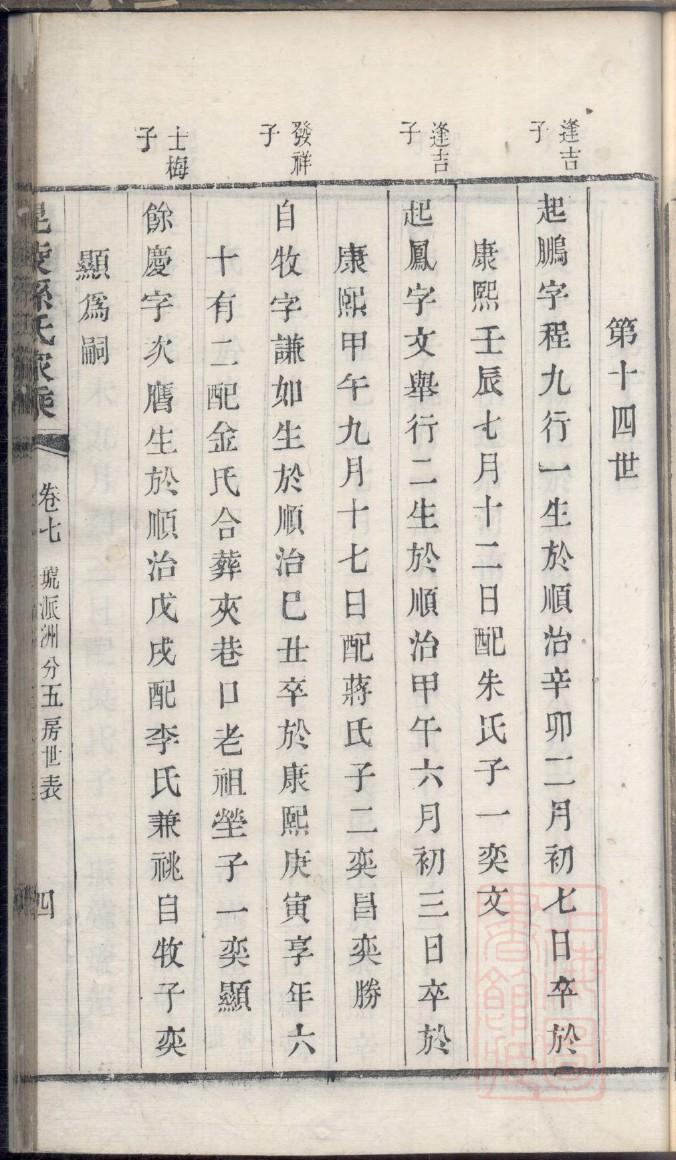 第十四世
逢吉子
起鵬字程九行一生於順治辛卯二月初七日卒於
康熙壬辰七月十二日配朱氏子一奕文
逢吉子
起鳳字文舉行二生於順治甲午六月初三日卒於
康熙甲午九月十七日配蔣氏子二奕昌奕勝
發祥子
自牧字謙如生於順治己丑卒於康熙庚寅享年六
十有二配金氏合葬夾巷口老祖塋子一奕顯
士梅子
餘慶字次膺生於順治戊戌配李氏兼祧自牧子奕
顯爲嗣
毘陵孫氏家乘
卷七
號派洲分五房世表
四